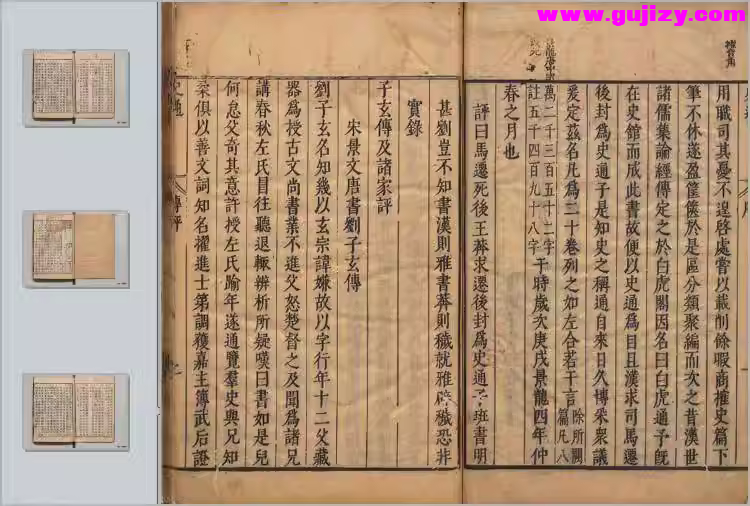 www.gujizy.com
用職司其憂不遑啓處嘗以載削餘暇商搉史篇下
筆不休遂盈筐篋於是區分類聚編而次之昔漢世
諸儒集論經傳定之於白虎閣因名曰白虎通予旣
在史館而成此書故便以史通爲目且漢求司馬遷
後封爲史通子是知史之稱通自來日久博采衆議
爰定茲名凡爲二十卷列之如左合若干言除所闕篇凡八
萬二千三百五十二字註五千四百九十八字于時歲次庚戌景龍四年仲
春之月也
評曰馬遷死後王莽求遷後封爲史通子班書明
甚劉豈不知書漢則雅書莽則穢就雅辟穢恐非
實錄
子玄傳及諸家評
宋景文唐書劉子玄傳
劉子玄名知幾以玄宗諱嫌故以字行年十二父藏
器爲授古文尚書業不進父怒楚督之及聞爲諸兄
講春秋左氏冒往聽退輒辨析所疑嘆曰書如是兒
何怠父奇其意許授左氏踰年遂通覽羣史與兄知
柔俱以善文詞知名擢進士第調獲嘉王簿武后證
史通
傳評